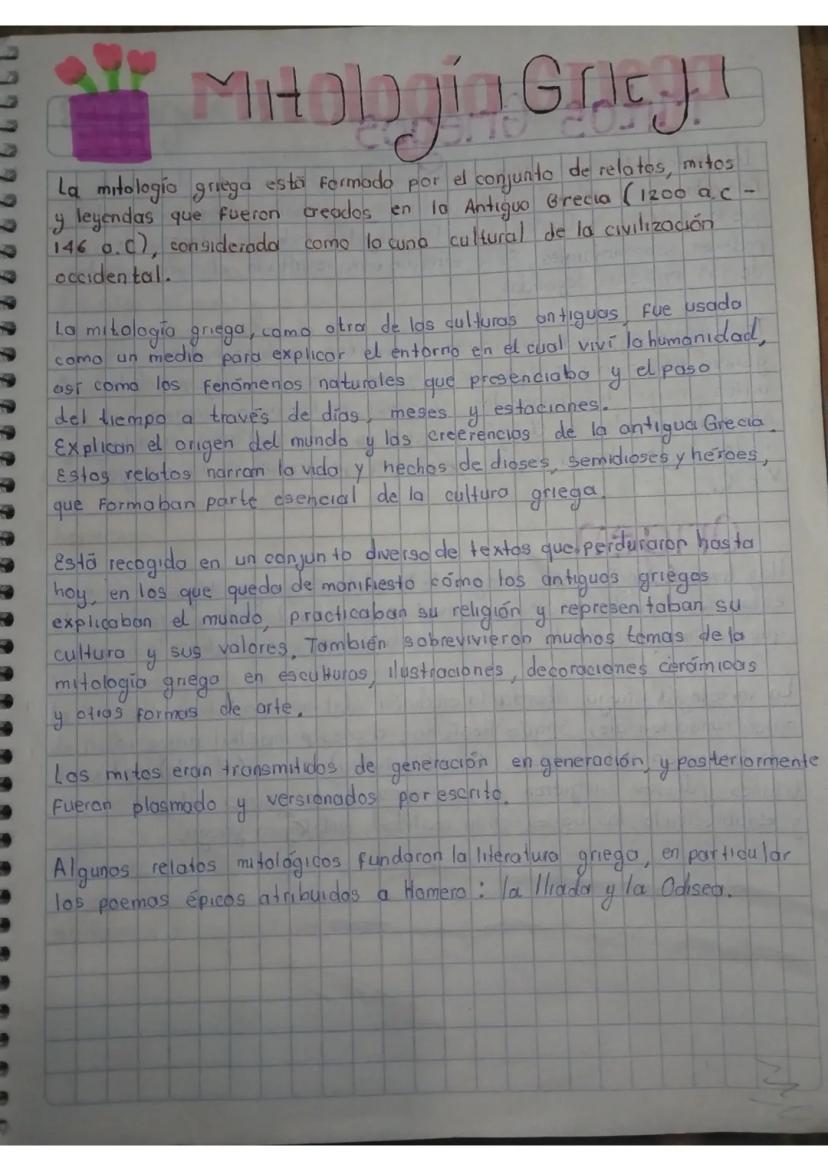 Mitología Griega
La mitología griega está formado por el conjunto de relatos, mitos
y leyendas que fueron creados en la Antigua Grecia (1200 a.c -
146 a.c), considerada como la cuna cultural de la civilización
occidental.
La mitología griega, como otra de las culturas antiguas, fue usada
como un medio para explicar el entorno en el cual viví la humanidad,
así como los fenómenos naturales que presenciaba y el paso
del tiempo a través de días, meses y estaciones.
Explican el origen del mundo y las creerencias de la antigua Grecia.
Estos relatos narran la vida y hechos de dioses, semidioses y héroes,
que formaban parte esencial de la cultura griega.
Está recogido en un conjunto diverso de textos que perduraron hasta
hoy, en los que queda de manifiesto cómo los antiguos griegos
explicaban el mundo, practicaban su religión y representaban su
cultura y sus valores. También sobrevivieron muchos temas de la
mitología griega en esculturas, ilustraciones, decoraciones cerámicas
y otras formas de arte.
Los mitos eran transmitidos de generación en generación, y posteriormente
fueron plasmado y versionados por escrito.
Algunos relatos mitológicos fundaron la literatura griega, en particular
los poemas épicos atribuidos a Homero: la Iliada y la Odisea.